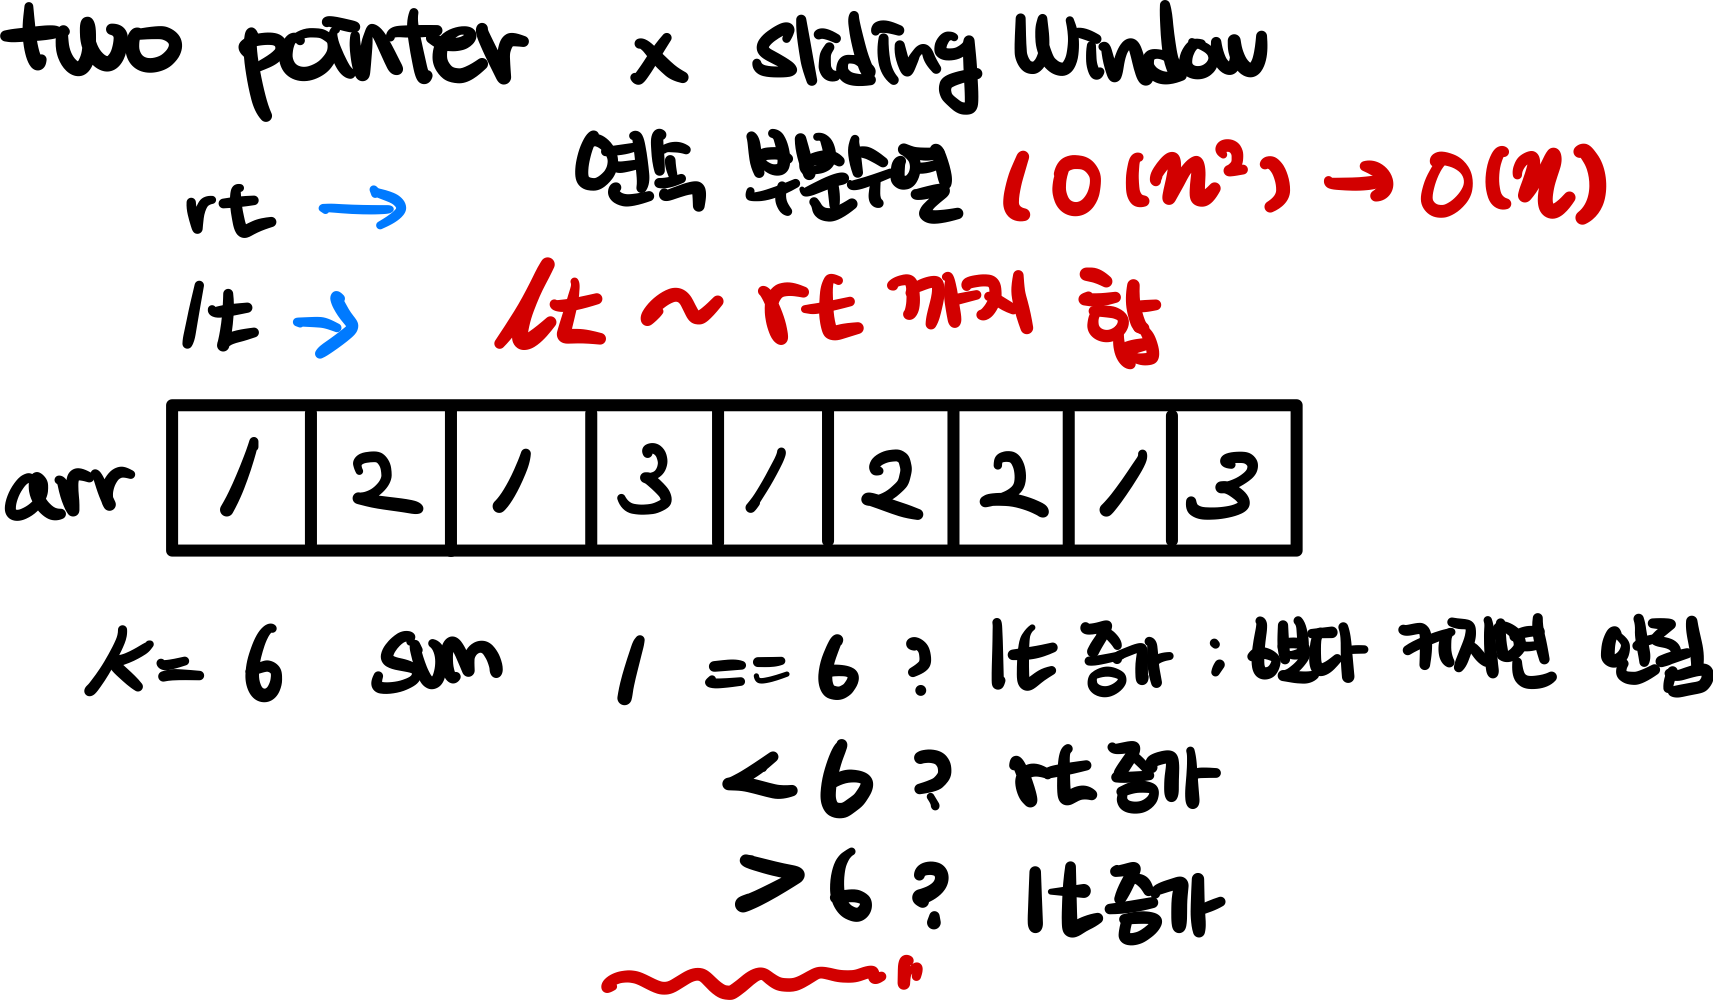 two pointer x sliding window
연속 부분수열 (O(n²) → O(n)
rt →
lt → lt ~ rt 까지 합
arr 1 2 1 3 1 2 2 1 3
K = 6 sum 1 == 6 ? lt 증가 : 6보다 커지면 안됨
< 6 ? rt 증가
> 6 ? lt 증가